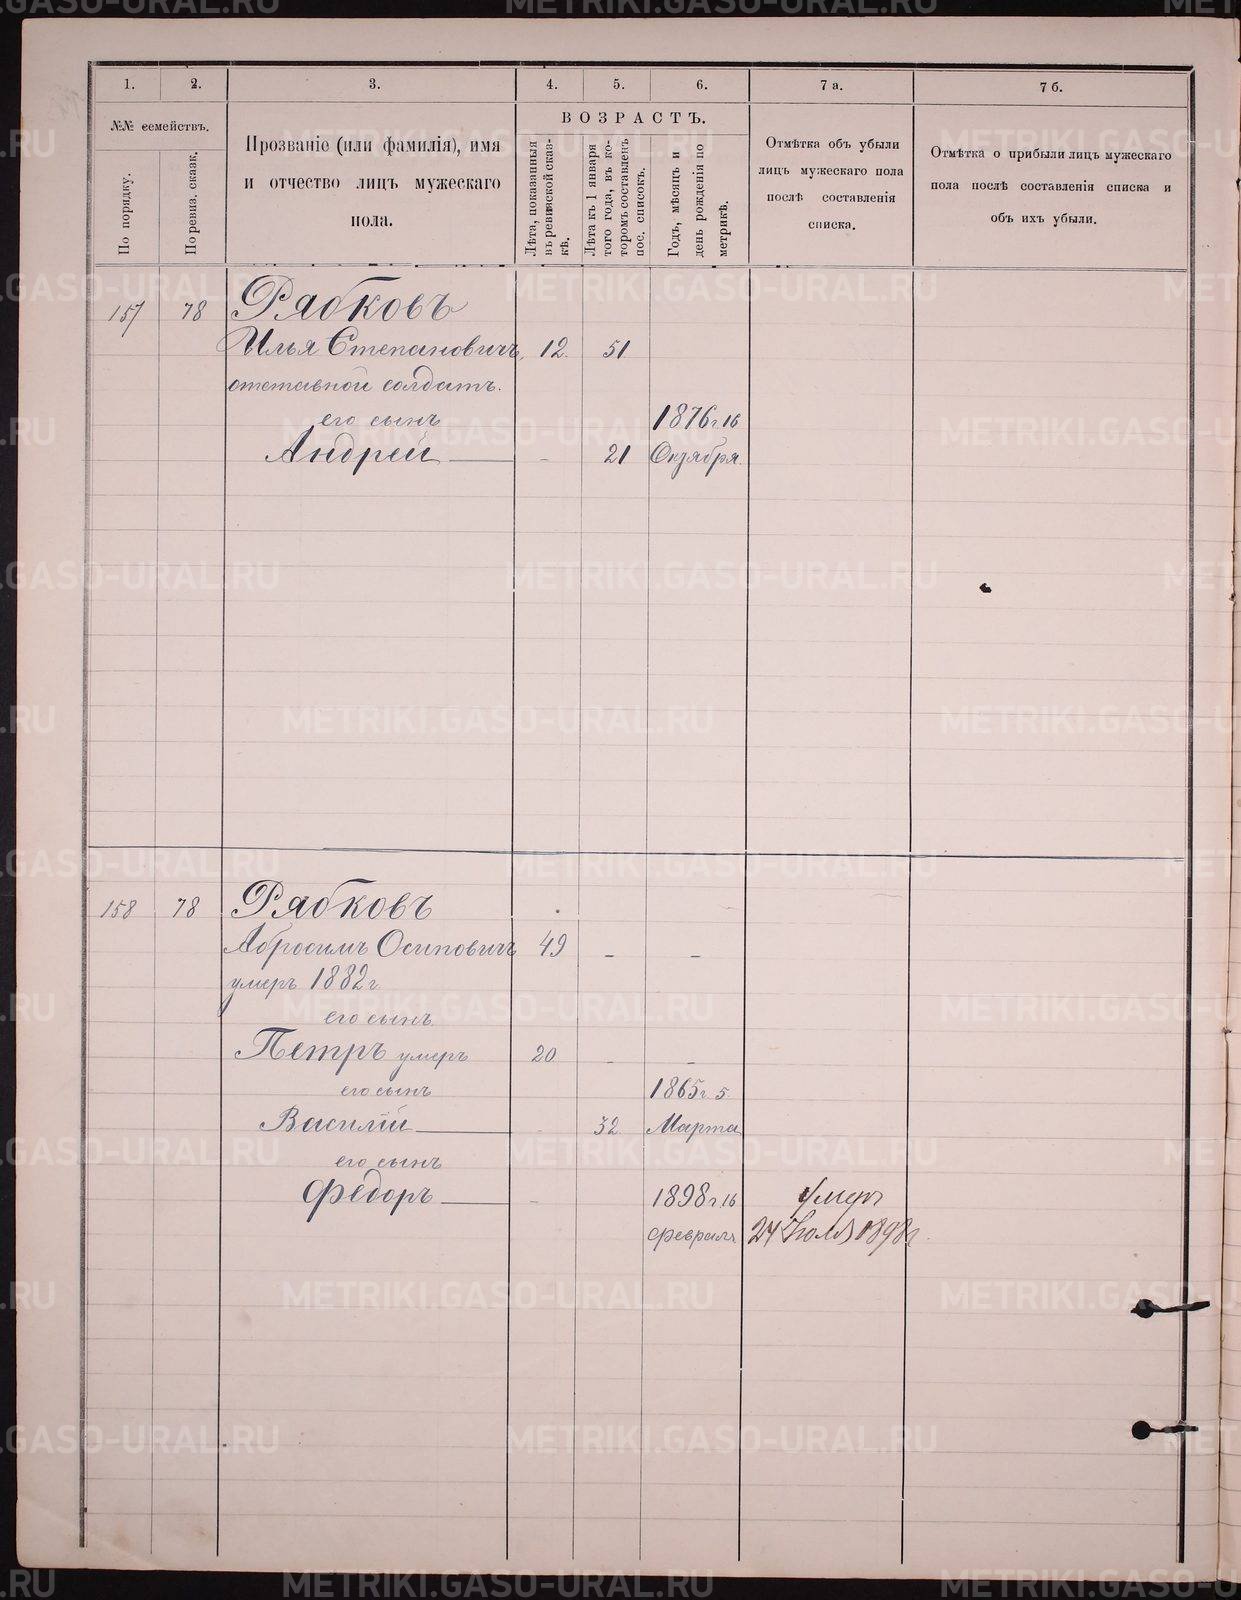 1.
2.
3.
4.
5.
6.
7 а.
7 б.
№№ семействъ.
По порядку.
По ревиз. сказк.
Прозваніе (или фамилія), имя
и отчество лицъ мужескаго
пола.
ВОЗРАСТЪ.
Лѣта, показанныя
въ ревизской сказ-
кѣ.
Лѣта къ 1 января
того года, въ ко-
торомъ составленъ
пос. списокъ.
Годъ, мѣсяцъ и
день рожденія по
метрикѣ.
Отмѣтка объ убыли
лицъ мужескаго пола
послѣ составленія
списка.
Отмѣтка о прибыли лицъ мужескаго
пола послѣ составленія списка и
объ ихъ убыли.
157 78 Рябковъ
Илья Степановичъ, 12. 51
отставной солдатъ.
его сынъ 1876 г. 16
Андрей — - 21 Октября.
158 78 Рябковъ
Абросимъ Осиповичъ 49 - -
умеръ 1882 г
его сынъ
Петръ умеръ 20 - -
его сынъ 1865 г. 5.
Василій — - 32 Марта
его сынъ
Федоръ — - 1898 г. 16 Умеръ
февраля 24 Іюля 1898 г.
METRIKI.GASO-URAL.RU